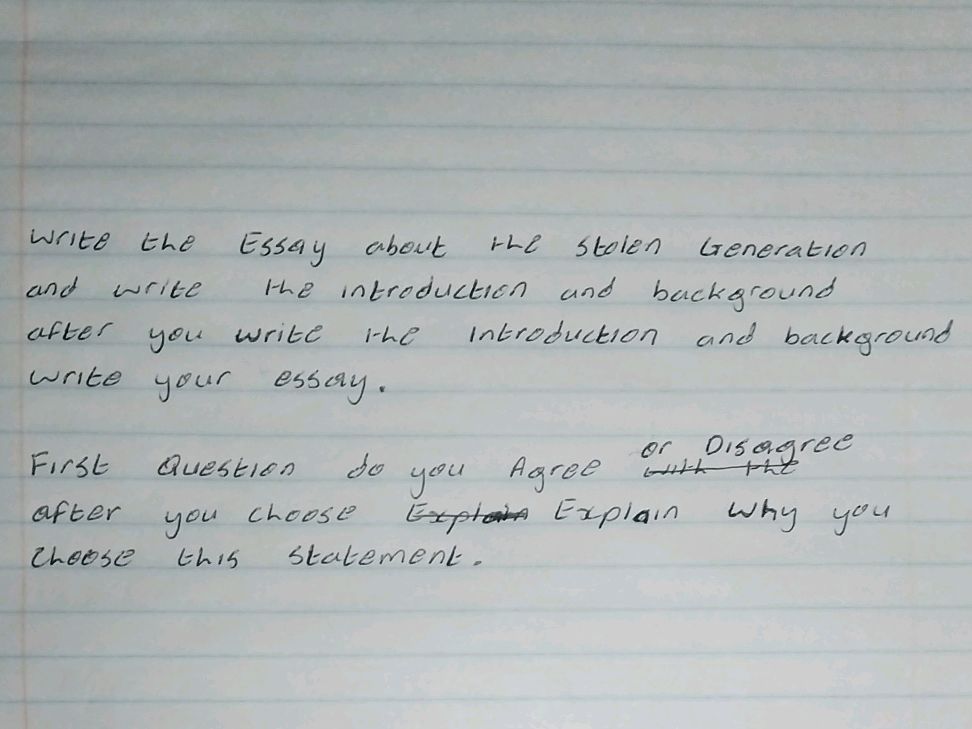 Write the Essay about the Stolen Generation
and write the introduction and background
after you write the Introduction and background
write your essay.
First Question do you Agree or Disagree
with the
after you choose Explain Explain Why you
Choose this Statement.